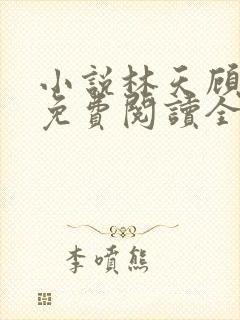 小說林天顧
免費閱讀全
李噴熊